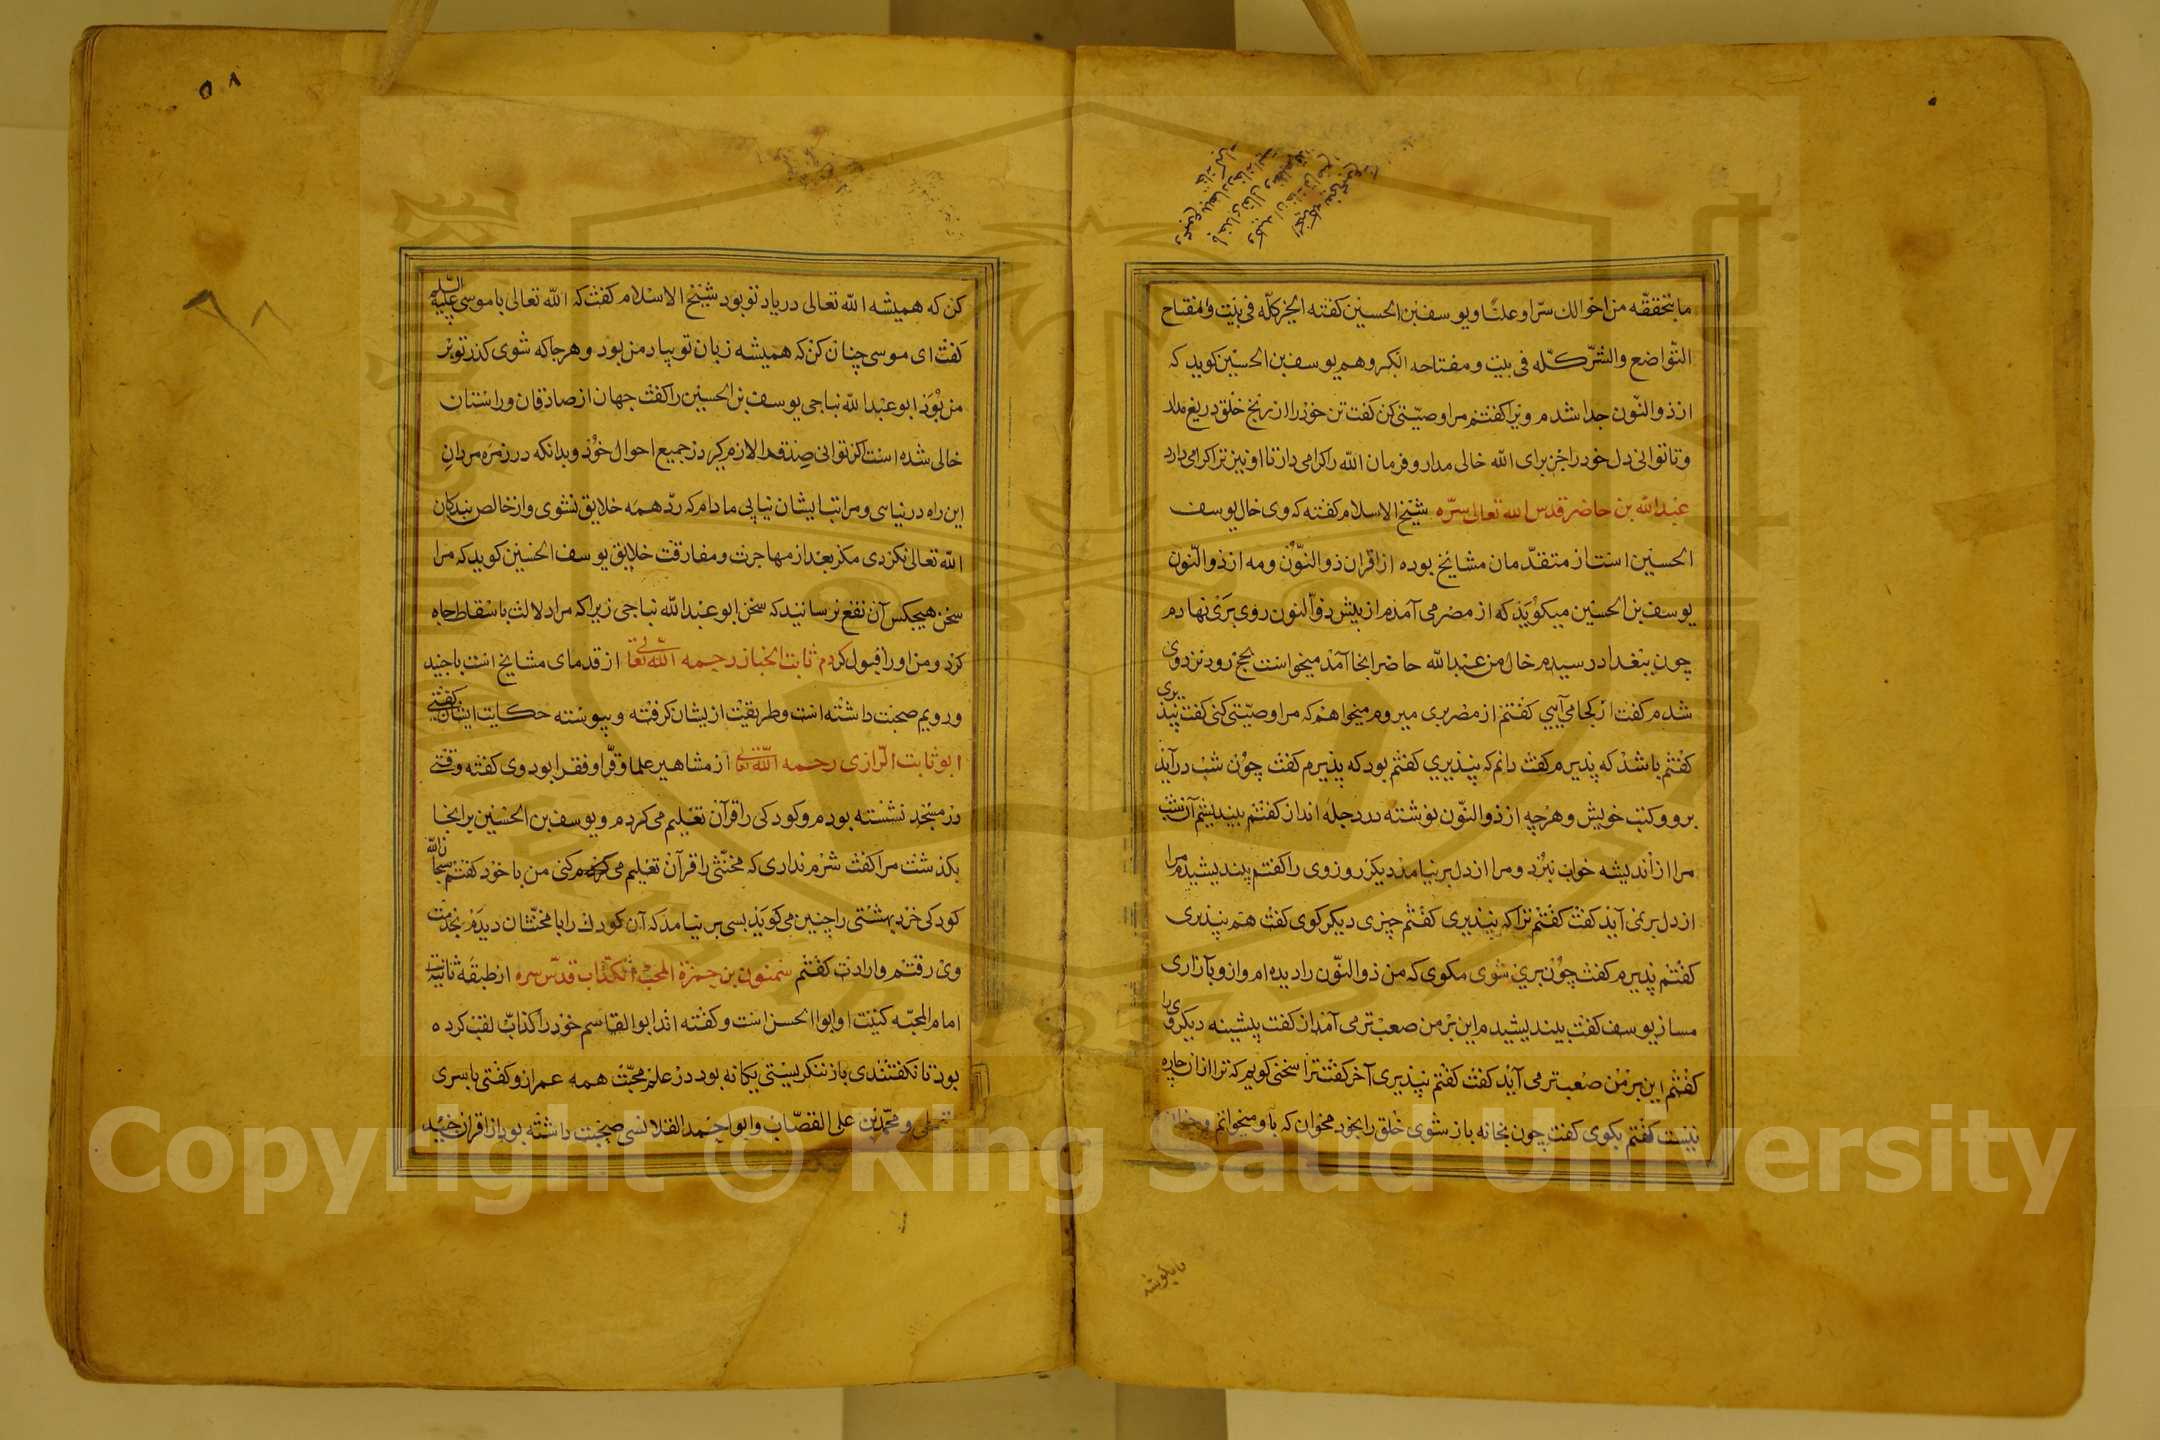 ما بتحققه من احوالك سرّا وعلنًا ويوسف بن الحسين كفته الخير كلّه فى بيت ومفتاح
التّواضع والشرّ كلّه فى بيت ومفتاحه الكبر وهم يوسف بن الحسين كويد كه
از ذو النّون جدا شدم ويرا كفتم مرا وصيّتى كن كفت تن خود را از رنج خلق دريغ مدار
وتا توانى دل خود را جز براى الله خالى مدار وفرمان الله را كرامى دار تا او نيز ترا كرامى دارد
عبد الله بن حاضر قدس الله تعالى سرّه شيخ الاسلام كفته كه وى خال يوسف
الحسين است از متقدّمان مشايخ بوده از اقران ذو النّون ومه از ذو النّون
يوسف بن الحسين ميكويد كه از مصر مى آمدم از پيش ذو النون روى برى نهادم
چون ببغداد رسيدم خال من عبد الله حاضر انجا آمد ميخواست بحج رود نزد وى
شدم كفت از كجا مى آيى كفتم از مصر برى ميروم ميخواهم كه مرا وصيّتى كنى كفت نپذيرى
كفتم باشد كه پذيرم كفت دانم كه نپذيرى كفتم بود كه پذيرم كفت چون شب درآيد
برو وكتب خويش وهرچه از ذو النّون نوشته در دجله انداز كفتم بينديشم آن شب
مرا از انديشه خواب نبرد ومرا از دل برنيامد ديكر روز وى را كفتم بينديشيدم مرا
از دل برنمى آيد كفت كفتم ترا كه نپذيرى كفتم چيزى ديكر كوى كفت هم نپذيرى
كفتم پذيرم كفت چون برى شوى مكوى كه من ذو النّون را ديده ام واز و بازارى
مساز يوسف كفت بينديشيدم اين بر من صعب تر مى آمد از كفت پيشينه ديكر وى را
كفتم اين بر من صعب تر مى آيد كفت كفتم نپذيرى آخر كفت ترا سخنى كويم كه ترا از ان چاره
نيست كفتم بكوى كفت چون بخانه باز شوى خلق را بخود مخوان كه باو ميخوانم
٥٨
كن كه هميشه الله تعالى در ياد تو بود شيخ الاسلام كفت كه الله تعالى با موسى عليه السّلم
كفت اى موسى چنان كن كه هميشه زبان تو بياد من بود وهر جا كه شوى كذر تو بر
من بود ابو عبد الله نباجى يوسف بن الحسين را كفت جهان از صادقان وراستان
خالى شده است اكر توانى صدق را لازم كير در جميع احوال خود وبدانكه در زمره مردان
اين راه در نياسى ومراتب ايشان نيابى مادام كه ردّ همه خلايق نشوى واز خالص بندكان
الله تعالى نكردى مكر بعد از مهاجرت ومفارقت خلايق يوسف الحسين كويد كه مرا
سخن هيچكس آن نفع نرسانيد كه سخن ابو عبد الله نباجى زيرا كه مرا دلالت باسقاط جاه
كرد ومن اورا قبول كردم ثابت الخباز رحمه الله تعالى از قدماى مشايخ است با جنيد
ورويم صحبت داشته است وطريقت ازيشان كرفته وپيوسته حكايت ايشان كفتى
ابو ثابت الرّازى رحمه الله تعالى از مشاهير علما وقرّا وفقرا بود وى كفته وقتى
در مسجد نشسته بودم وكودكى را قرآن تعليم مى كردم ويوسف بن الحسين بر انجا
بكذشت مرا كفت شرم ندارى كه مخنّثى را قرآن تعليم مى كنى من با خود كفتم سبحان الله
كودكى خرد بهشتى را چنين مى كويد بسى برنيامد كه آن كودك را با مخنّثان ديدم بخدمت
وى رفتم وارادت كفتم سمنون بن حمزة المحبّ الكذّاب قدّس سره از طبقه ثانيه است
امام المحبّه كنيت او ابوا الحسن است وكفته اند ابو القاسم خود را كذّاب لقب كرده
بود تا نكفتندى باز ننكريستى يكانه بود در علم محبّت همه عمر از و كفتى با سرى
سقطى ومحمد بن على القصّاب وابو احمد القلانسى صحبت داشته بود از اقران جنيد